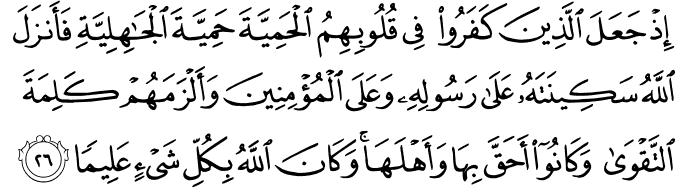 إِذۡ جَعَلَ ٱلَّذِينَ كَفَرُواْ فِي قُلُوبِهِمُ ٱلۡحَمِيَّةَ حَمِيَّةَ ٱلۡجَٰهِلِيَّةِ فَأَنزَلَ
ٱللَّهُ سَكِينَتَهُۥ عَلَىٰ رَسُولِهِۦ وَعَلَى ٱلۡمُؤۡمِنِينَ وَأَلۡزَمَهُمۡ كَلِمَةَ
ٱلتَّقۡوَىٰ وَكَانُوٓاْ أَحَقَّ بِهَا وَأَهۡلَهَاۚ وَكَانَ ٱللَّهُ بِكُلِّ شَيۡءٍ عَلِيمٗا ٢٦